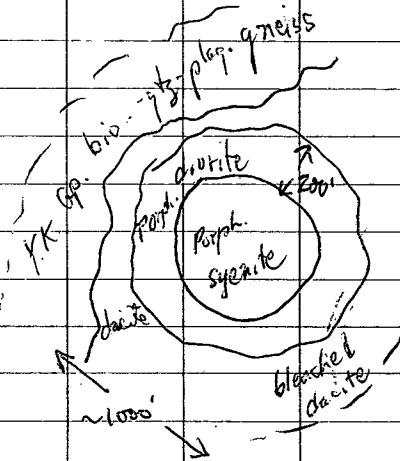 Y.K. Gp. bio.-qtz-plag. gneiss
porph. diorite
<200'
Porph.
syenite
dacite
bleached
dacite
~1000'